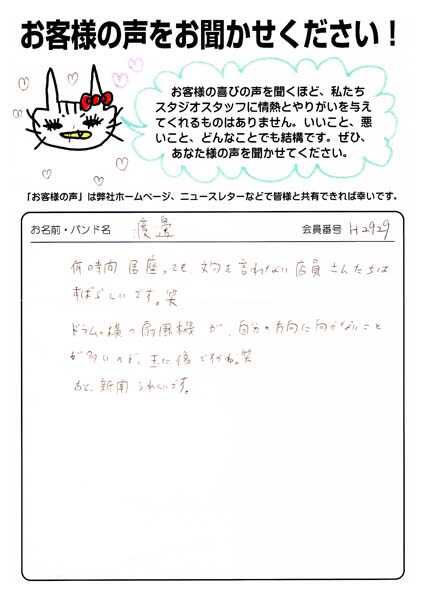 お客様の声をお聞かせください！
お客様の喜びの声を聞くほど、私たち
スタジオスタッフに情熱とやりがいを与え
てくれるものはありません。いいこと、悪
いこと、どんなことでも結構です。ぜひ、
あなた様の声を聞かせてください。
「お客様の声」は弊社ホームページ、ニュースレターなどで皆様と共有できれば幸いです。
お名前・バンド名
会員番号 H2929
何時間 居座っても 文句を言わない店員さんたちは
すばらしいです。笑
ドラムの横の扇風機が、自分の方向に向かないこと
が多いので、
笑
あと、新聞うれしいです。